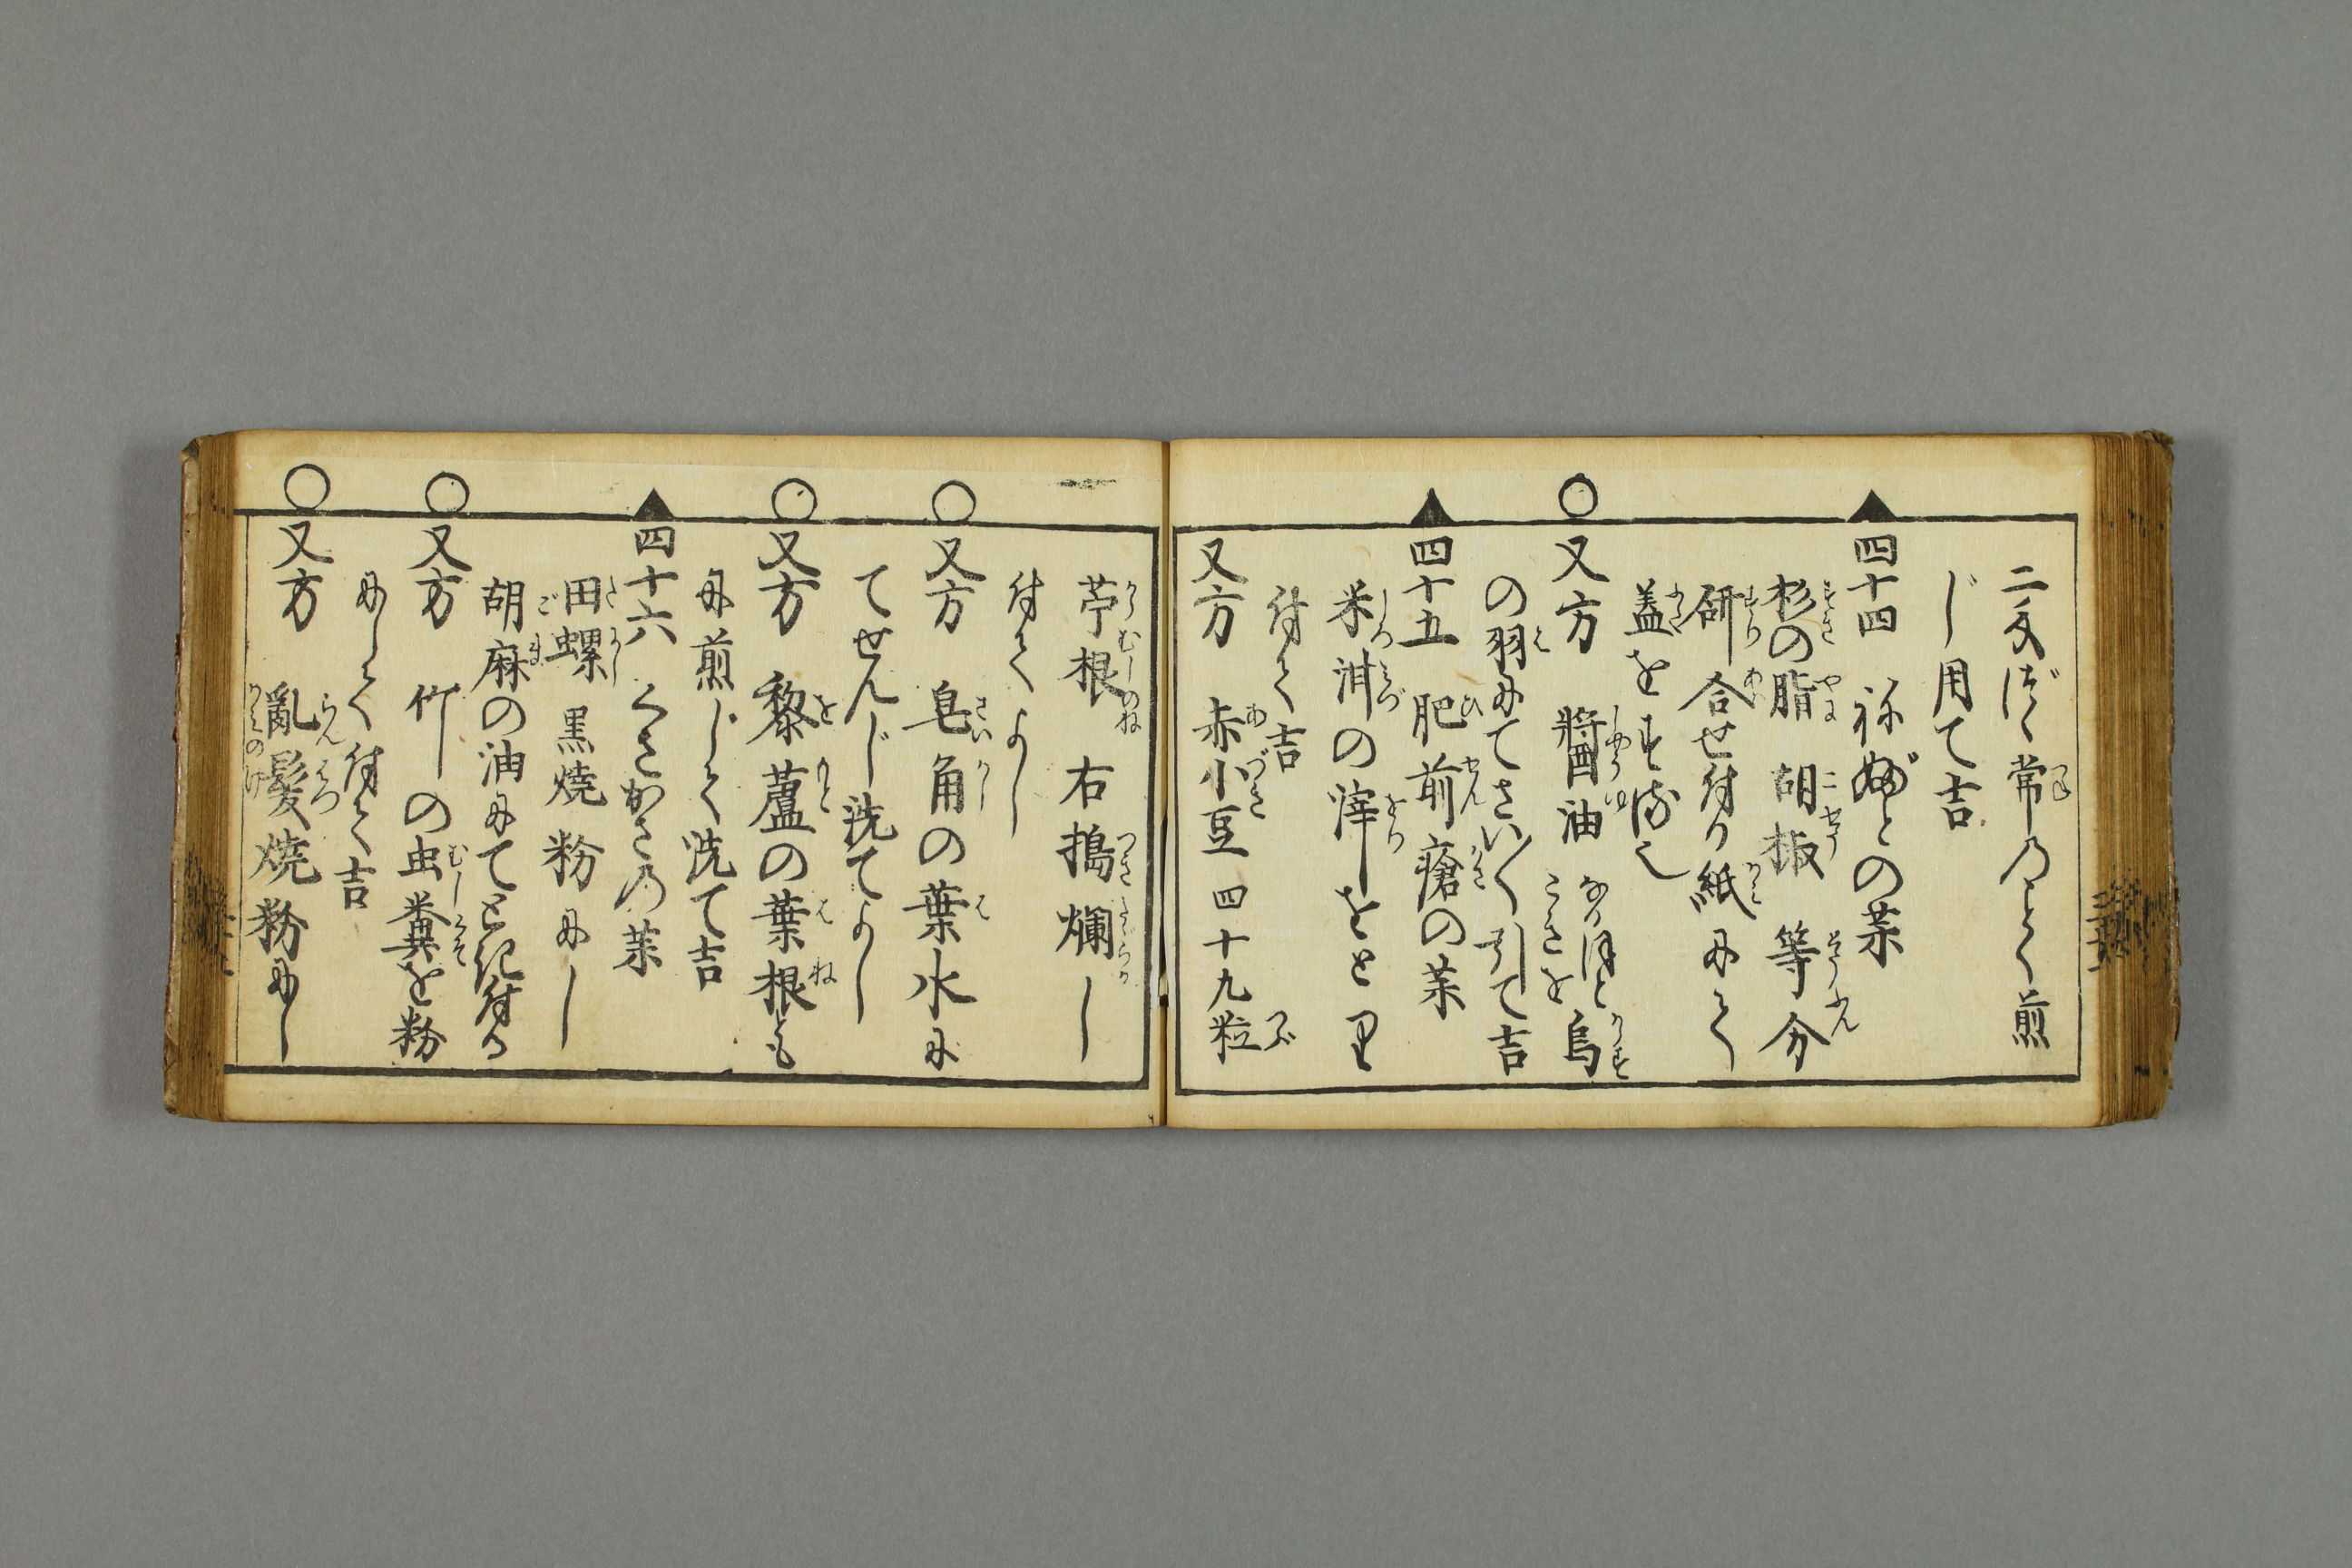 二匁づゝ常のごとく煎
じ用て吉
四十四 ねぶとの薬
杉の脂 胡椒 等分
研合せ付る紙にて
蓋をすべし
又方 醤油 なるほどこきを 烏
の羽にてさい〳〵引て吉
四十五 肥前瘡の薬
米泔の滓をとり
付て吉
又方 赤小豆四十九粒
苧根 右搗爛し
付てよし
又方 皂角の葉水に
てせんじ洗てよし
又方 藜蘆の葉根とも
に煎じて洗て吉
四十六 くさかさの薬
田螺 黒焼粉にし
胡麻の油にてとき付る
又方 竹の虫糞を粉
にして付て吉
又方 亂髪焼粉にし